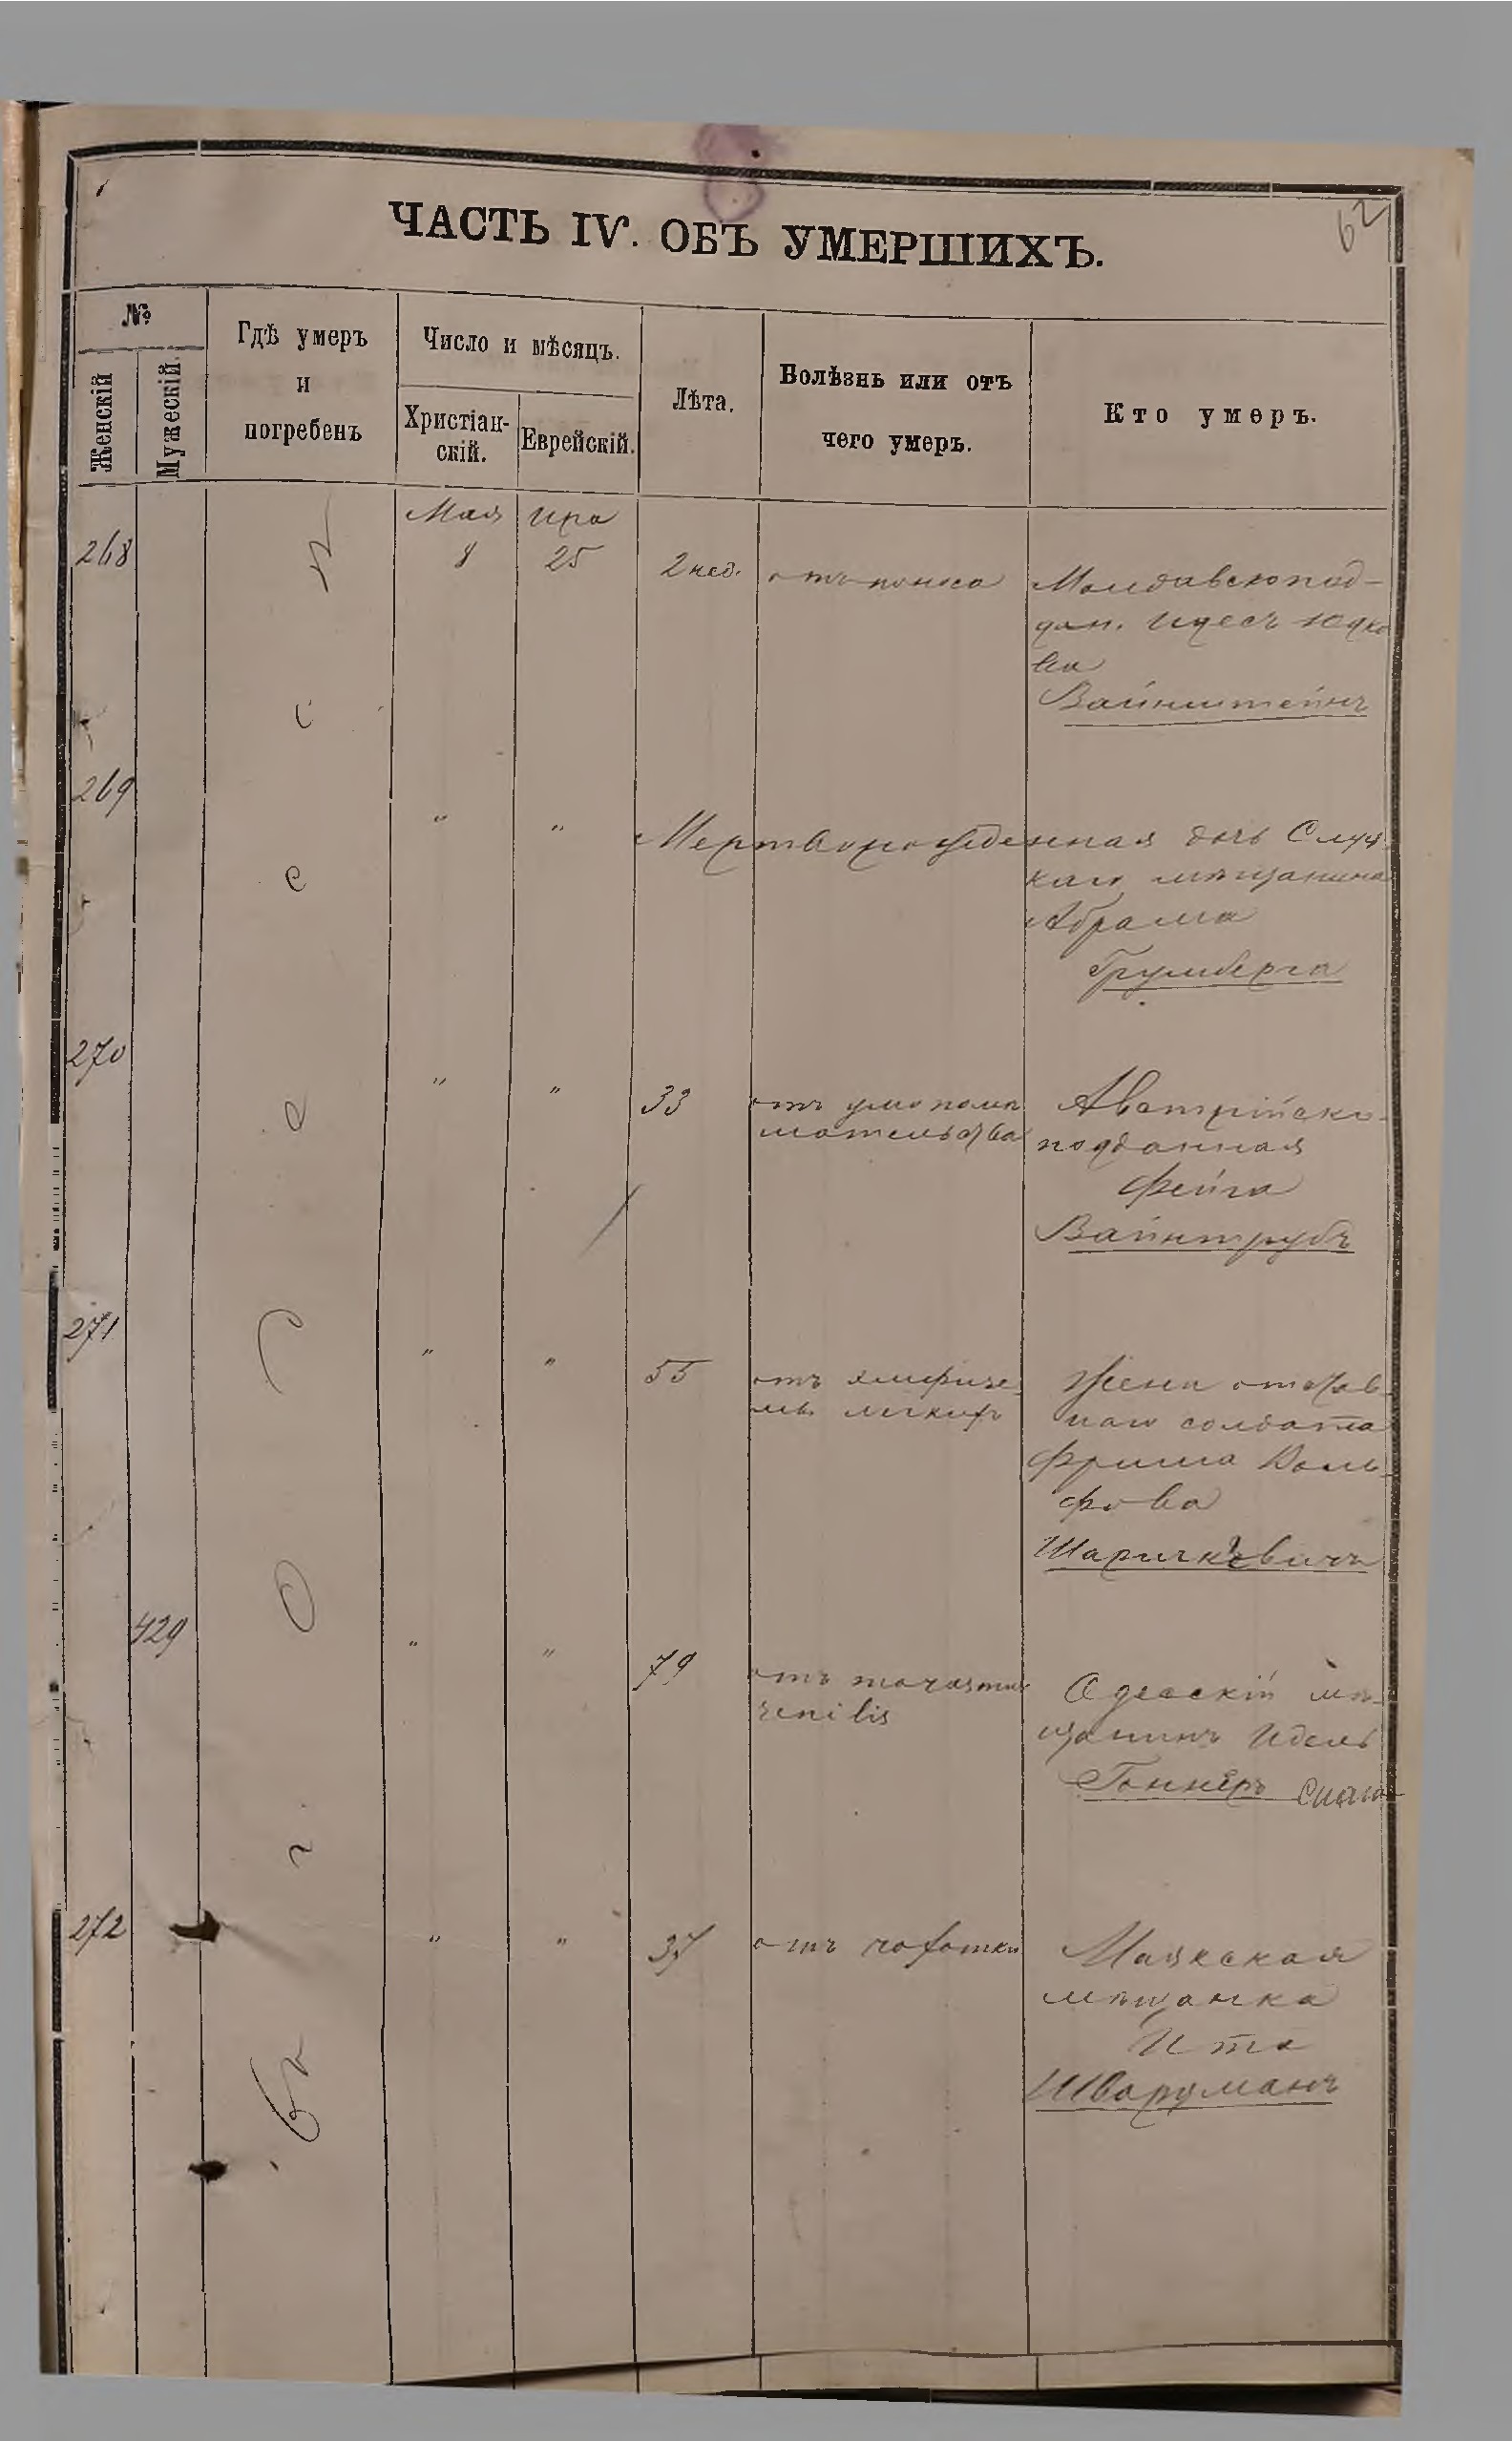 62
ЧАСТЬ IV. ОБЪ УМЕРШИХЪ.
№
Женскій
Мужескій.
Гдѣ умеръ
и
погребенъ
Число и мѣсяцъ.
Христіан-
скій.
Еврейскій.
Лѣта.
Болѣзнь или отъ
чего умеръ.
Кто умеръ.
Мая
Ира
268
8
25
2 нед.
отъ поноса
Молдавскопод-
дан. Идесъ Юдко
ва
Вайнштейнъ
269
"
"
Мертворожденная дочь Слуц
каго мѣщанина
Абрама
Грумберга
270
"
"
33
отъ умопомѣ
шательства
Австрійско-
подданная
Фейга
Вайнтрубъ
271
"
"
55
отъ
легкихъ
Жена отстав-
наго солдата
Фрима Воль-
фова
429
"
"
79
отъ маразмus
senilis
Одесскій мѣ-
щанинъ Идель
Гоннеръ
272
"
"
отъ чахотки
Маякская
мѣщанка
Ита
Шварцманъ
Въ г. Одессѣ